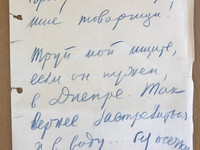 мне товарищи!
Труп мой ищите,
если он нужен,
в Днепре. Так
вернее застрелиться
и в воду...